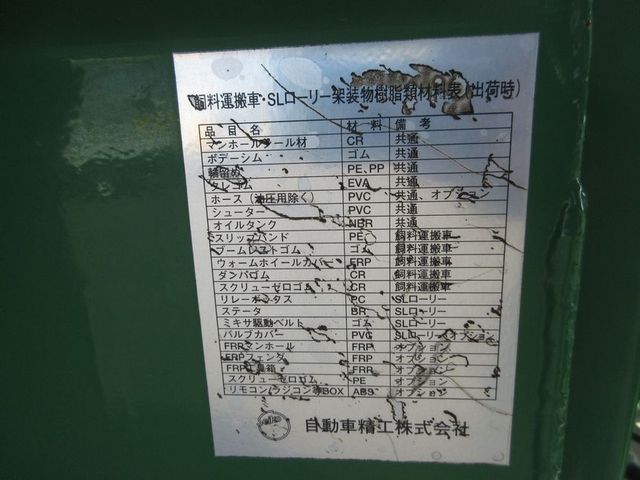 飼料運搬車・SLローリー架装物樹脂類材料表(出荷時)
品目名 材料 備考
マンホールシール材 CR 共通
ボデーシム ゴム 共通
輪留め PE、PP 共通
EVA 共通
ホース(油圧用除く) PVC 共通、オプション
シューター PVC 共通
オイルタンク NBR 共通
スリップバンド PE 飼料運搬車
ブームレストゴム ゴム 飼料運搬車
ウォームホイールカバー FRP 飼料運搬車
ダンパゴム CR 飼料運搬車
スクリューゼロゴム CR 飼料運搬車
PC SLローリー
ステータ BR SLローリー
ミキサ駆動ベルト ゴム SLローリー
バルブカバー PVC SLローリーオプション
FRPマンホール FRP オプション
FRPフェンダ FRP オプション
FRP工具箱 FRP オプション
スクリューゼロゴム PE オプション
リモコン(ラジコン等)BOX ABS オプション
自動車精工株式会社